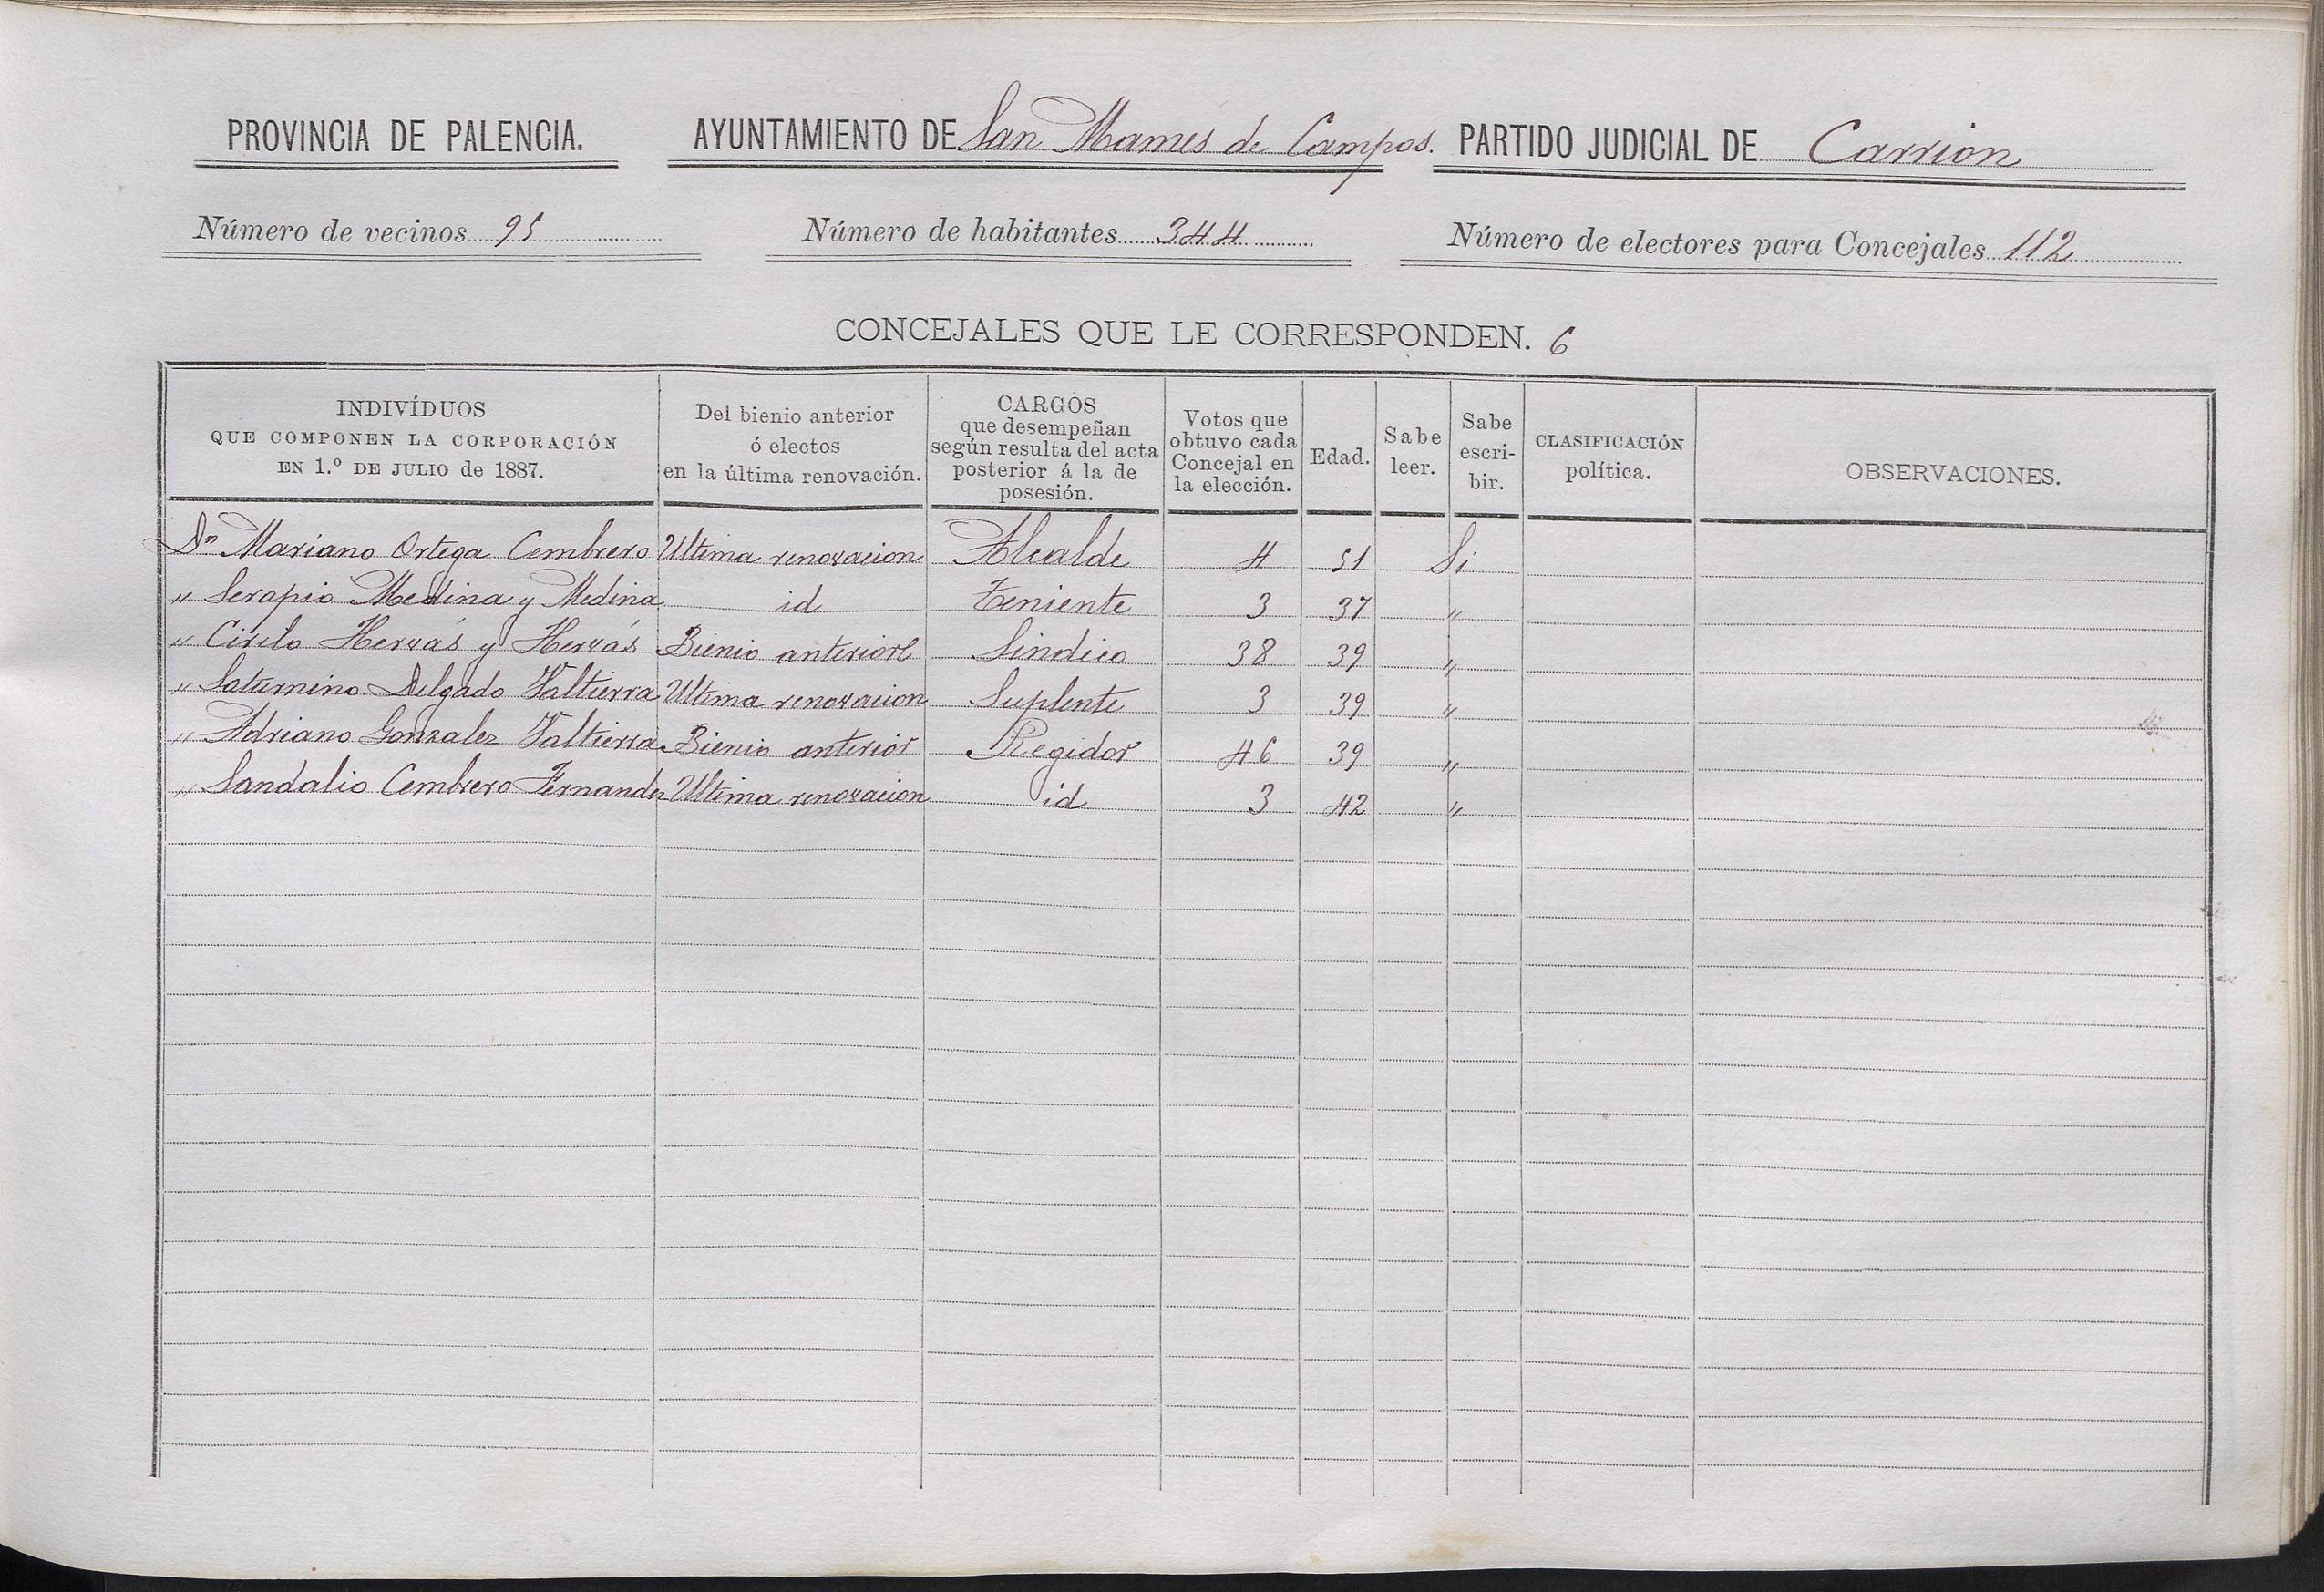 PROVINCIA DE PALENCIA. AYUNTAMIENTO DE San Mamés de Campos. PARTIDO JUDICIAL DE Carrion
Número de vecinos 95 Número de habitantes 344 Número de electores para Concejales 112
CONCEJALES QUE LE CORRESPONDEN. 6
INDIVÍDUOS
QUE COMPONEN LA CORPORACIÓN
EN 1.º DE JULIO de 1887.
Del bienio anterior
ó electos
en la última renovación.
CARGOS
que desempeñan
según resulta del acta
posterior á la de
posesión.
Votos que
obtuvo cada
Concejal en
la elección.
Edad.
Sabe
leer.
Sabe
escri-
bir.
CLASIFICACIÓN
política.
OBSERVACIONES.
Dn Mariano Ortega Cembrero Ultima renovacion Alcalde 4 51 Si
" Serapio Medina y Medina id Teniente 3 37 "
" Cirilo Hervás y Hervás Bienio anterior Sindico 38 39 "
" Saturnino Delgado Valtierra Ultima renovacion Suplente 3 39 "
" Adriano Gonzalez Valtierra Bienio anterior Regidor 46 39 "
" Sandalio Cembrero Fernandez Ultima renovacion id 3 42 "